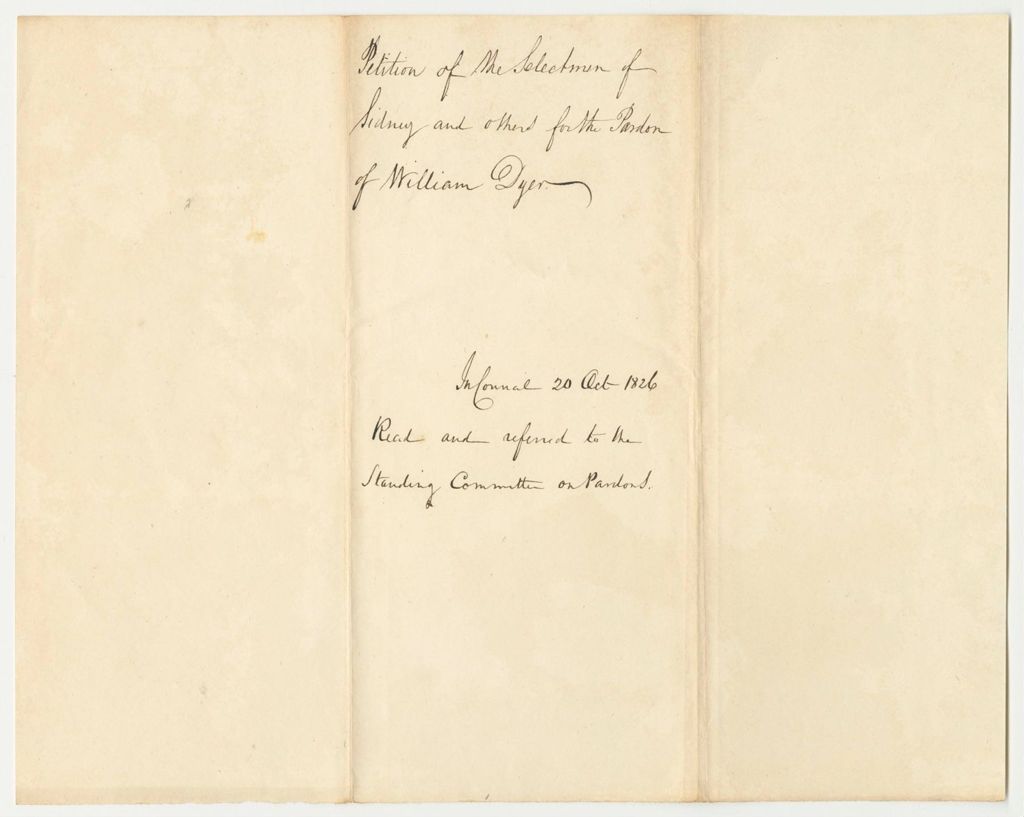 Petition of the Selectmen of
Sidney and others for the Pardon
of William Dyer.
In Council 20 Oct 1826
Read and referred to the
Standing Committee on Pardons.